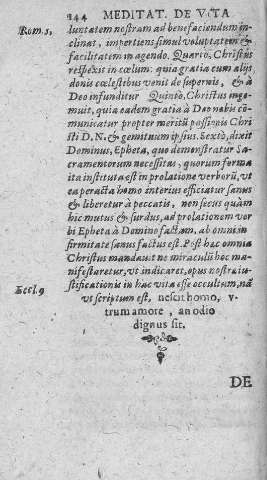 144 MEDITAT. DE VITA
Rom. 5. luntatem nostram ad benefaciendum in-
clinat, impertiens simul voluptatem &
facilitatem in agendo. Quartò, Christus
respexit in cœlum: quia gratia cum alijs
donis cœlestibus venit de supernis, & à
Deo infunditur. Quintò, Christus inge-
muit, quia eadem gratia à Deo nobis cō-
municatur propter meritū passionis Chri
sti D.N. & gemituum ipsius. Sextò, dixit
Dominus, Epheta, quo demonstratur Sa-
cramentorum necessitas, quorum forma
ita instituta est in prolatione verborū, vt
ea peracta homo interius efficiatur sanus
& liberetur à peccatis, non secus quàm
hic mutus & surdus, ad prolationem ver
bi Epheta à Domino factam, ab omni in
firmitate sanus factus est. Post hac omnia
Christus mandauit ne miraculū hoc ma-
nifestaretur, vt indicaret, opus nostræ iu-
stificationis in hac vita esse occultum, nā
Eccl. 9 vt scriptum est, nescit homo, v-
trum amore, an odio
dignus sit.
DE